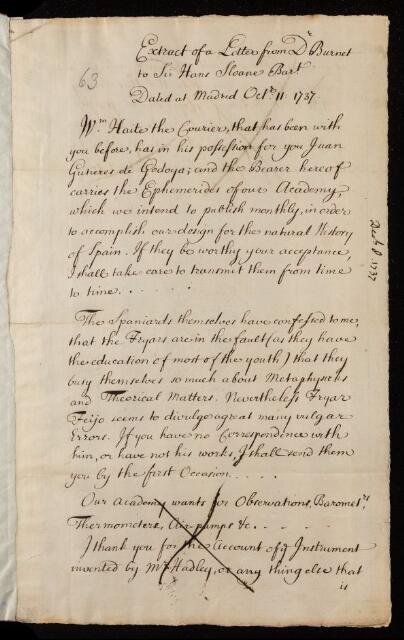 63
Extract of a Letter from Dr. Burnet
to Sir Hans Sloane Bart.
Dated at Madrid Octr. 11. 1737.
Wm. Haite the Courier, that has been with
you before, has in his possession for you Juan
Gutieres de Godoya; and the Bearer hereof
carries the Ephemerides of our Academy,
which we intend to publish monthly, in order
to accomplish our design for the natural History
of Spain. If they be worthy your acceptance,
I shall take care to transmit them from time
to time. . . . . . .
Decb 8. 1737
The Spaniards themselves have confessed to me,
that the Fryars are in the fault (as they have
the education of most of the youth) that they
busy themselves so much about Metaphysicks
and Theorical Matters. Nevertheless Fryar
Feijo seems to divulge a great many vulgar
Errors. If you have no Correspondence with
him, or have not his works, I shall send them
you by the first Occasion. . . . .
Our Academy wants for Observations, Baromet.rs
Thermometers, Air-pumps &c. . . . .
I thank you for the Account of ye Instrument
invented by Mr. Hadley, or any thing else that
is